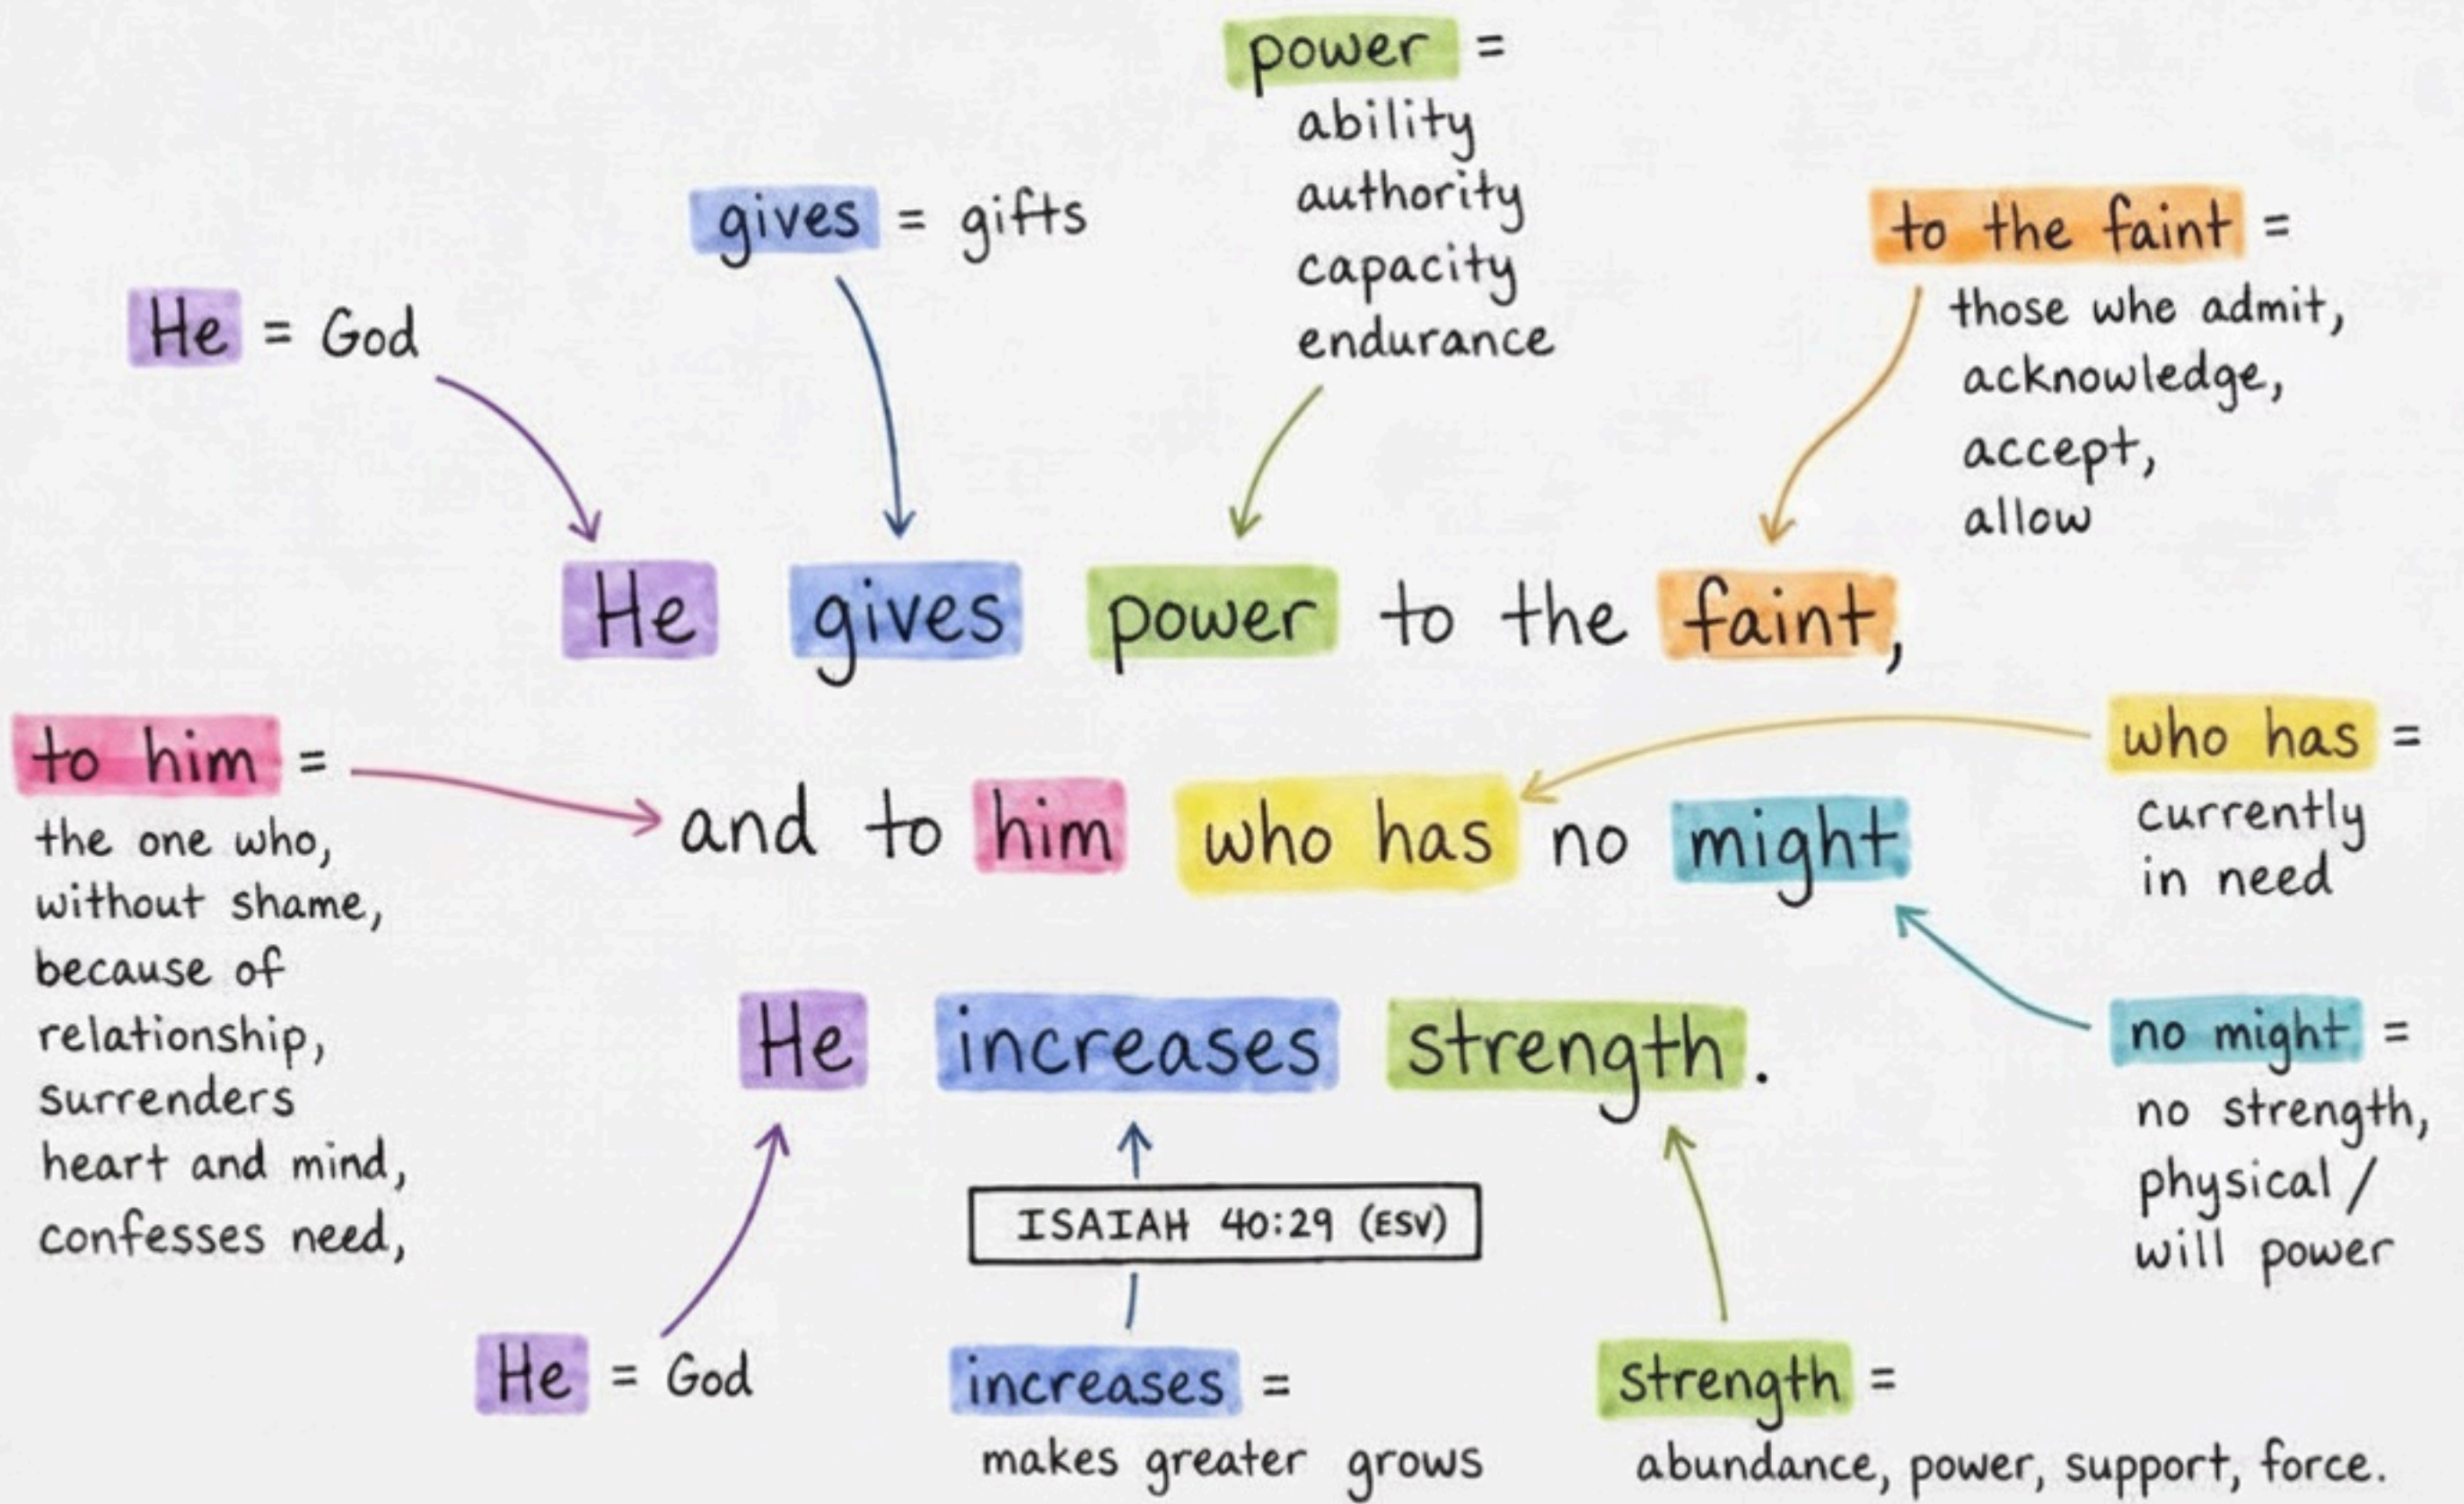 power =
ability
authority
capacity
endurance
gives = gifts
to the faint =
those whe admit,
acknowledge,
accept,
allow
He = God
He gives power to the faint,
to him =
the one who,
without shame,
because of
relationship,
surrenders
heart and mind,
confesses need,
and to him who has no might
who has =
currently
in need
no might =
no strength,
physical /
will power
He increases strength.
ISAIAH 40:29 (ESV)
He = God
increases =
makes greater grows
strength =
abundance, power, support, force.